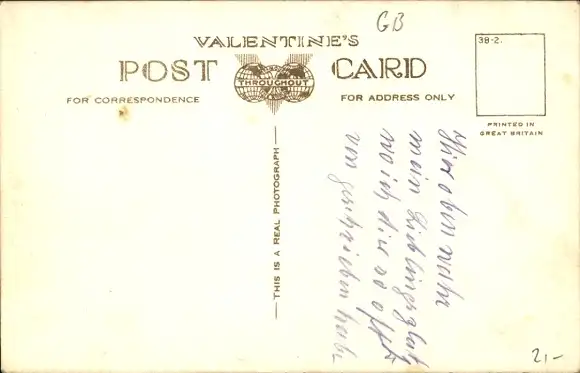 GB
VALENTINE'S
POST CARD
THROUGHOUT
FOR CORRESPONDENCE
FOR ADDRESS ONLY
38-2.
PRINTED IN
GREAT BRITAIN
THIS IS A REAL PHOTOGRAPH
Hier oben war
mein Lieblingsplatz
wo ich dir so oft
von geschrieben habe
21,-